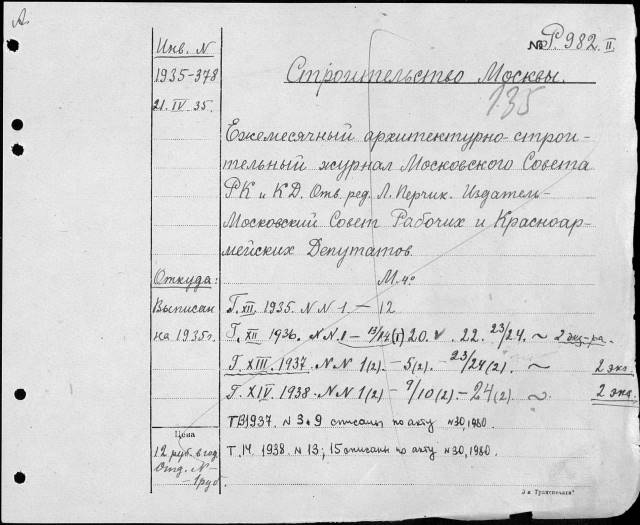 А.
Инв. N
1935-378
21.IV 35.
№ Р. 982. II
Строительство Москвы.
135
Ежемесячный архитектурно-строи-
тельный журнал Московского Совета
РК и КД. Отв. ред. Л. Перчик. Издатель-
Московский Совет Рабочих и Красноар-
мейских Депутатов.
М. 4°
Откуда:
Выписан
на 1935 г.
Г. XII. 1935. N N 1 — 12
Г. XII 1936. N N. 1 — 13/14 (1) 20. v. 22. 23/24. ~ 2 экз-ра.
Г. XIII. 1937. N N 1(2) — 5(2). — 23/24(2). ~ 2 экз.
Г. XIV. 1938. N N 1(2) — 9/10(2) — 24(2) ~ 2 экз.
1937. N 3.9 списаны по акту N 30, 1980.
Т. 14. 1938. N 13; 15 списаны по акту N 30, 1980.
Цена
12 руб. в год
Отд. N —
— 1 руб.
3-я „Транспечати"